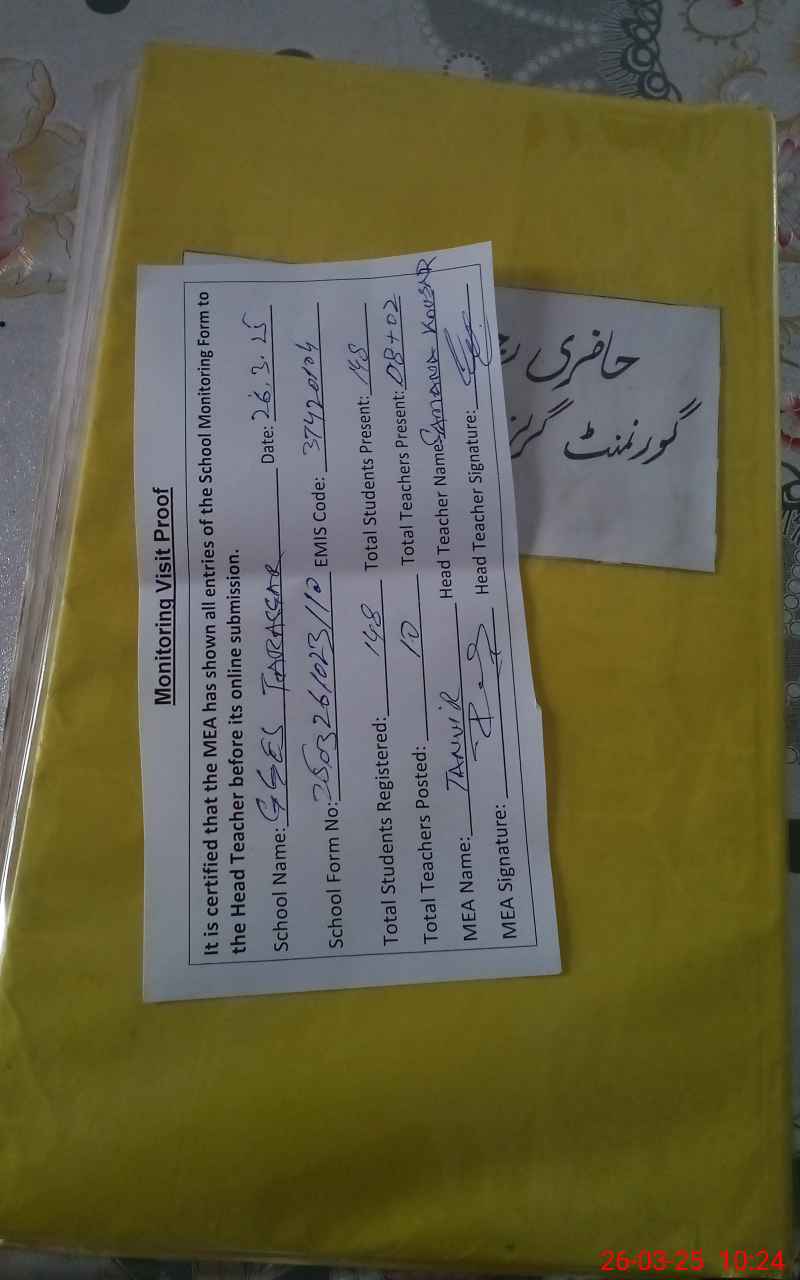 Monitoring Visit Proof
It is certified that the MEA has shown all entries of the School Monitoring Form to
the Head Teacher before its online submission.
School Name: GGES TARAGGAR Date: 26.3.25
School Form No: 2503261023110 EMIS Code: 37420104
Total Students Registered: 148 Total Students Present: 148
Total Teachers Posted: 10 Total Teachers Present: 08+02
MEA Name: TANVIR Head Teacher Name: SAMANA KOUSAR
MEA Signature: Head Teacher Signature:
حاضری
گورنمنٹ
26-03-25 10:24